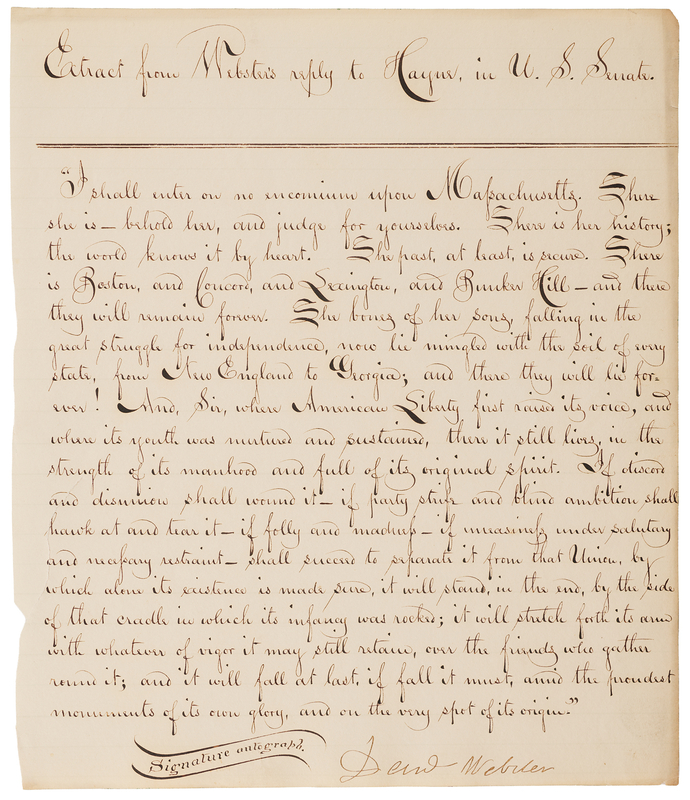 Extract from Webster's reply to Hayne, in U. S. Senate.
"I shall enter on no encomium upon Massachusetts. There
she is – behold her, and judge for yourselves. There is her history;
the world knows it by heart. The past, at least, is secure. There
is Boston, and Concord, and Lexington, and Bunker Hill – and there
they will remain forever. The bones of her sons, falling in the
great struggle for independence, now lie mingled with the soil of every
state, from New England to Georgia; and there they will lie for-
ever! And, Sir, where American Liberty first raised its voice, and
where its youth was nurtured and sustained, there it still lives, in the
strength of its manhood and full of its original spirit. If discord
and disunion shall wound it – if party strife and blind ambition shall
hawk at and tear it – if folly and madness – if uneasiness under salutary
and necessary restraint – shall succeed to separate it from that Union, by
which alone its existence is made sure, it will stand, in the end, by the side
of that cradle in which its infancy was rocked; it will stretch forth its arm
with whatever of vigor it may still retain, over the friends who gather
round it; and it will fall at last, if fall it must, amid the proudest
monuments of its own glory, and on the very spot of its origin."
Signature autograph.
Danl Webster